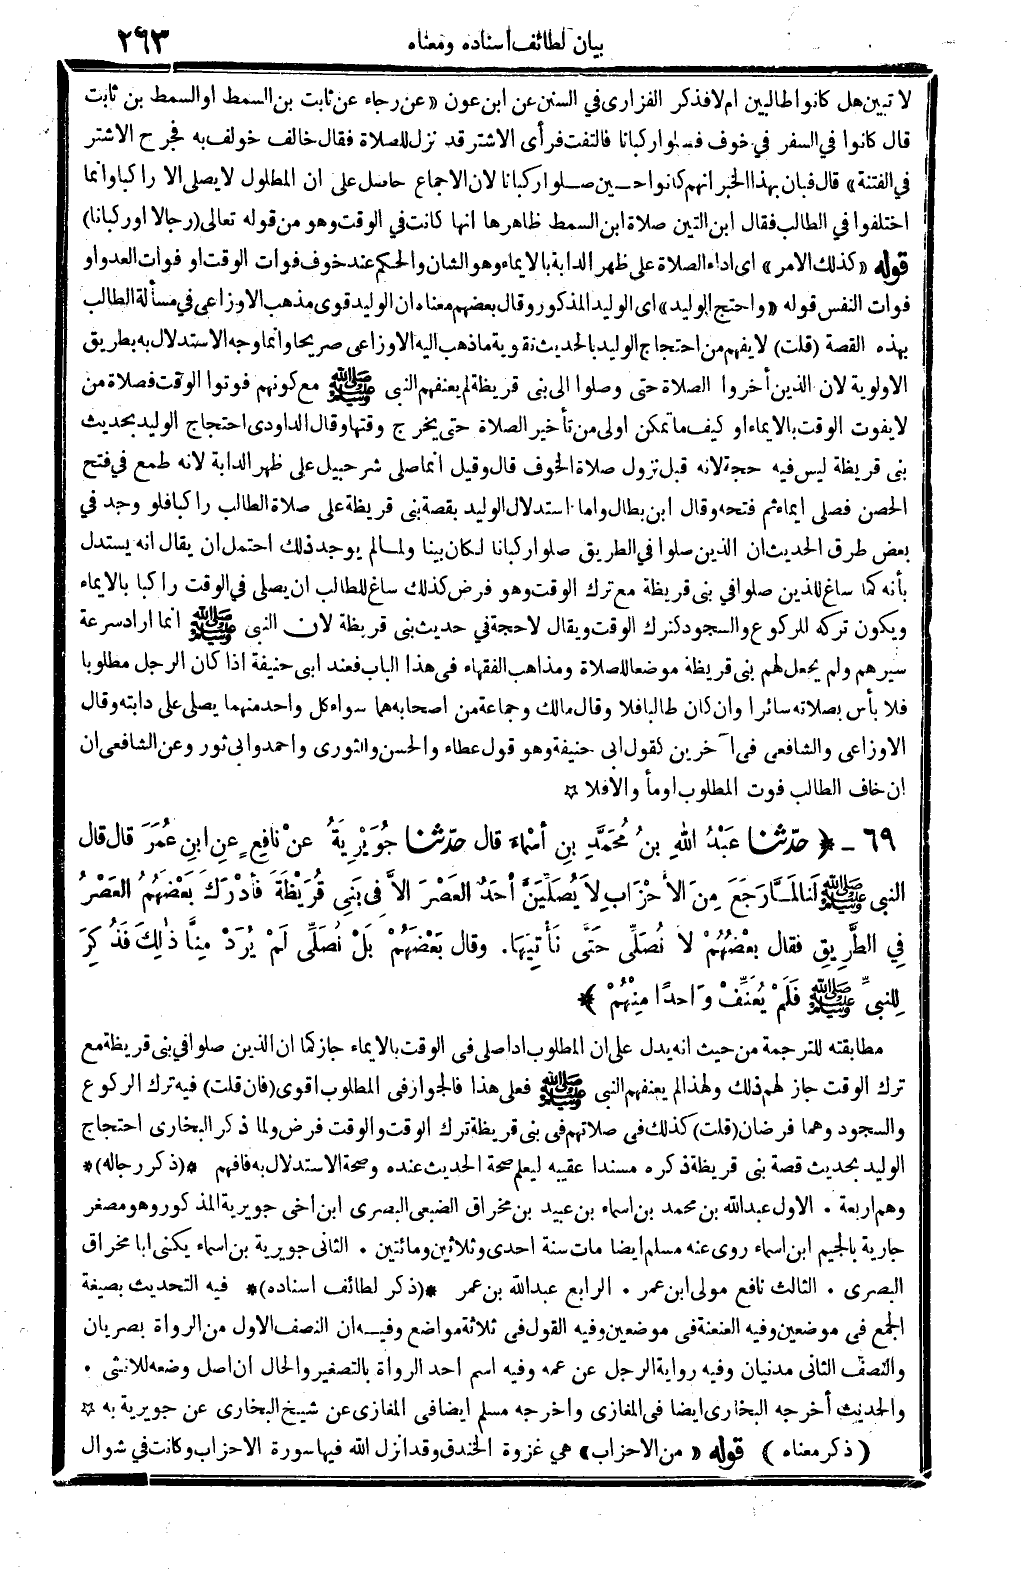 بيان لطائف أسناده ومعناه ٢٦٣
لا تبين هل كانوا طالبين ام لا فذكر الفزارى في السنن عن ابن عون «عن رجاء عن ثابت بن السمط او السمط بن ثابت
قال كانوا في السفر في خوف فصلوا ركبانا فالتفت فرأى الاشتر قد نزل للصلاة فقال خالف خولف به فجرح الاشتر
في الفتنة» قال فبان بهذا الخبر انهم كانوا حين صلوا ركبانا لان الاجماع حاصل على ان المطلول لا يصلى الا راكبا وانما
اختلفوا في الطالب فقال ابن التين صلاة ابن السمط ظاهرها انها كانت في الوقت وهو من قوله تعالى (رجالا او ركبانا)
قوله «كذلك الامر» اى اداء الصلاة على ظهر الدابة بالايماء وهو الشان والحكم عند خوف فوات الوقت او فوات العدو او
فوات النفس قوله «واحتج الوليد» اى الوليد المذكور وقال بعضهم معناه ان الوليد قوى مذهب الاوزاعى في مسألة الطالب
بهذه القصة (قلت) لا يفهم من احتجاج الوليد بالحديث تقوية ما ذهب اليه الاوزاعى صريحا وانما وجه الاستدلال به بطريق
الاولوية لان الذين أخروا الصلاة حتى وصلوا الى بنى قريظة لم يعنفهم النبى ﷺ مع كونهم فوتوا الوقت فصلاة من
لا يفوت الوقت بالايماء او كيف ما تمكن اولى من تأخير الصلاة حتى يخرج وقتها وقال الداودى احتجاج الوليد بحديث
بنى قريظة ليس فيه حجة لانه قبل نزول صلاة الخوف قال وقيل انما صلى شرحبيل على ظهر الدابة لانه طمع في فتح
الحصن فصلى ايماء ثم فتحه وقال ابن بطال واما استدلال الوليد بقصة بنى قريظة على صلاة الطالب راكبا فلو وجد في
بعض طرق الحديث ان الذين صلوا في الطريق صلوا ركبانا لكان بينا ولما لم يوجد ذلك احتمل ان يقال انه يستدل
بأنه كما ساغ للذين صلوا في بنى قريظة مع ترك الوقت وهو فرض كذلك ساغ للطالب ان يصلى في الوقت راكبا بالايماء
ويكون تركه للركوع والسجود كترك الوقت ويقال لا حجة في حديث بنى قريظة لان النبى ﷺ انما اراد سرعة
سيرهم ولم يجعل لهم بنى قريظة موضعا للصلاة ومذاهب الفقهاء فى هذا الباب فعند ابى حنيفة اذا كان الرجل مطلوبا
فلا بأس بصلاته سائرا وان كان طالبا فلا وقال مالك وجماعة من اصحابه هما سواء كل واحد منهما يصلى على دابته وقال
الاوزاعى والشافعى فى آخرين كقول ابى حنيفة وهو قول عطاء والحسن والثورى واحمد وابى ثور وعن الشافعى ان
ان خاف الطالب فوت المطلوب اومأ والا فلا ☆
٦٩ - ﴿ حدّثنا عَبْدُ اللهِ بنُ مُحَمَّدِ بنِ أسْماءَ قال حدّثنا جُوَيْرِيَةُ عنْ نافِعٍ عنِ ابنِ عُمَرَ قال قال
النبى ﷺ لَنا لمَّا رَجَعَ مِنَ الأحْزَابِ لاَ يُصَلِّيَنَّ أحَدٌ العَصْرَ الاَّ فى بَنِى قُرَيْظَةَ فأدْرَكَ بَعْضَهُمُ العَصْرُ
فِي الطَّرِيقِ فقال بعْضُهُمْ لا نُصَلِّى حَتَّى نَأْتِيَهَا. وقال بَعْضُهُمْ بَلْ نُصَلِّى لَمْ يُرَدْ مِنَّا ذٰلِكَ فَذُكِرَ
لِلنبىِّ ﷺ فَلَمْ يُعَنِّفْ وَاحدًا مِنْهُمْ ﴾
مطابقته للترجمة من حيث انه يدل على ان المطلوب اذا صلى فى الوقت بالايماء جاز كما ان الذين صلوا في بنى قريظة مع
ترك الوقت جاز لهم ذلك ولهذا لم يعنفهم النبى ﷺ فعلى هذا فالجواز فى المطلوب اقوى (فان قلت) فيه ترك الركوع
والسجود وهما فرضان (قلت) كذلك فى صلاتهم فى بنى قريظة ترك الوقت والوقت فرض ولما ذكر البخارى احتجاج
الوليد بحديث قصة بنى قريظة ذكره مسندا عقيبه ليعلم صحة الحديث عنده وصحة الاستدلال به فافهم *(ذكر رجاله)*
وهم اربعة . الاول عبدالله بن محمد بن اسماء بن عبيد بن مخراق الضبعى البصرى ابن اخى جويرية المذكور وهو مصغر
جارية بالجيم ابن اسماء روى عنه مسلم ايضا مات سنة احدى وثلاثين ومائتين . الثانى جويرية بن اسماء يكنى ابا مخراق
البصرى . الثالث نافع مولى ابن عمر . الرابع عبدالله بن عمر *(ذكر لطائف اسناده)* فيه التحديث بصيغة
الجمع فى موضعين وفيه العنعنة فى موضعين وفيه القول فى ثلاثة مواضع وفيه ان النصف الاول من الرواة بصريان
والنصف الثانى مدنيان وفيه رواية الرجل عن عمه وفيه اسم احد الرواة بالتصغير والحال ان اصل وضعه للانثى .
والحديث أخرجه البخارى ايضا فى المغازى واخرجه مسلم ايضا فى المغازى عن شيخ البخارى عن جويرية به ☆
(ذكر معناه) قوله «من الاحزاب» هي غزوة الخندق وقد انزل الله فيها سورة الاحزاب وكانت في شوال